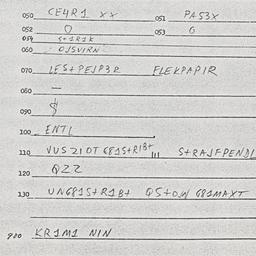 050 CE4R1 XX 051 PA53X
052 O 053 O
054 S+1R1K
060 OJSVIRN
070 IES+PEJP3R FLEKPAPIR
080 –
090 $
100 ENTL
110 VUS ZIOT 681S+RIB+ S+RAJFPENDL
120 QZZ
130 UN681S+R1B+ QS+OW 681MAXT
900 KR1M1 NIN